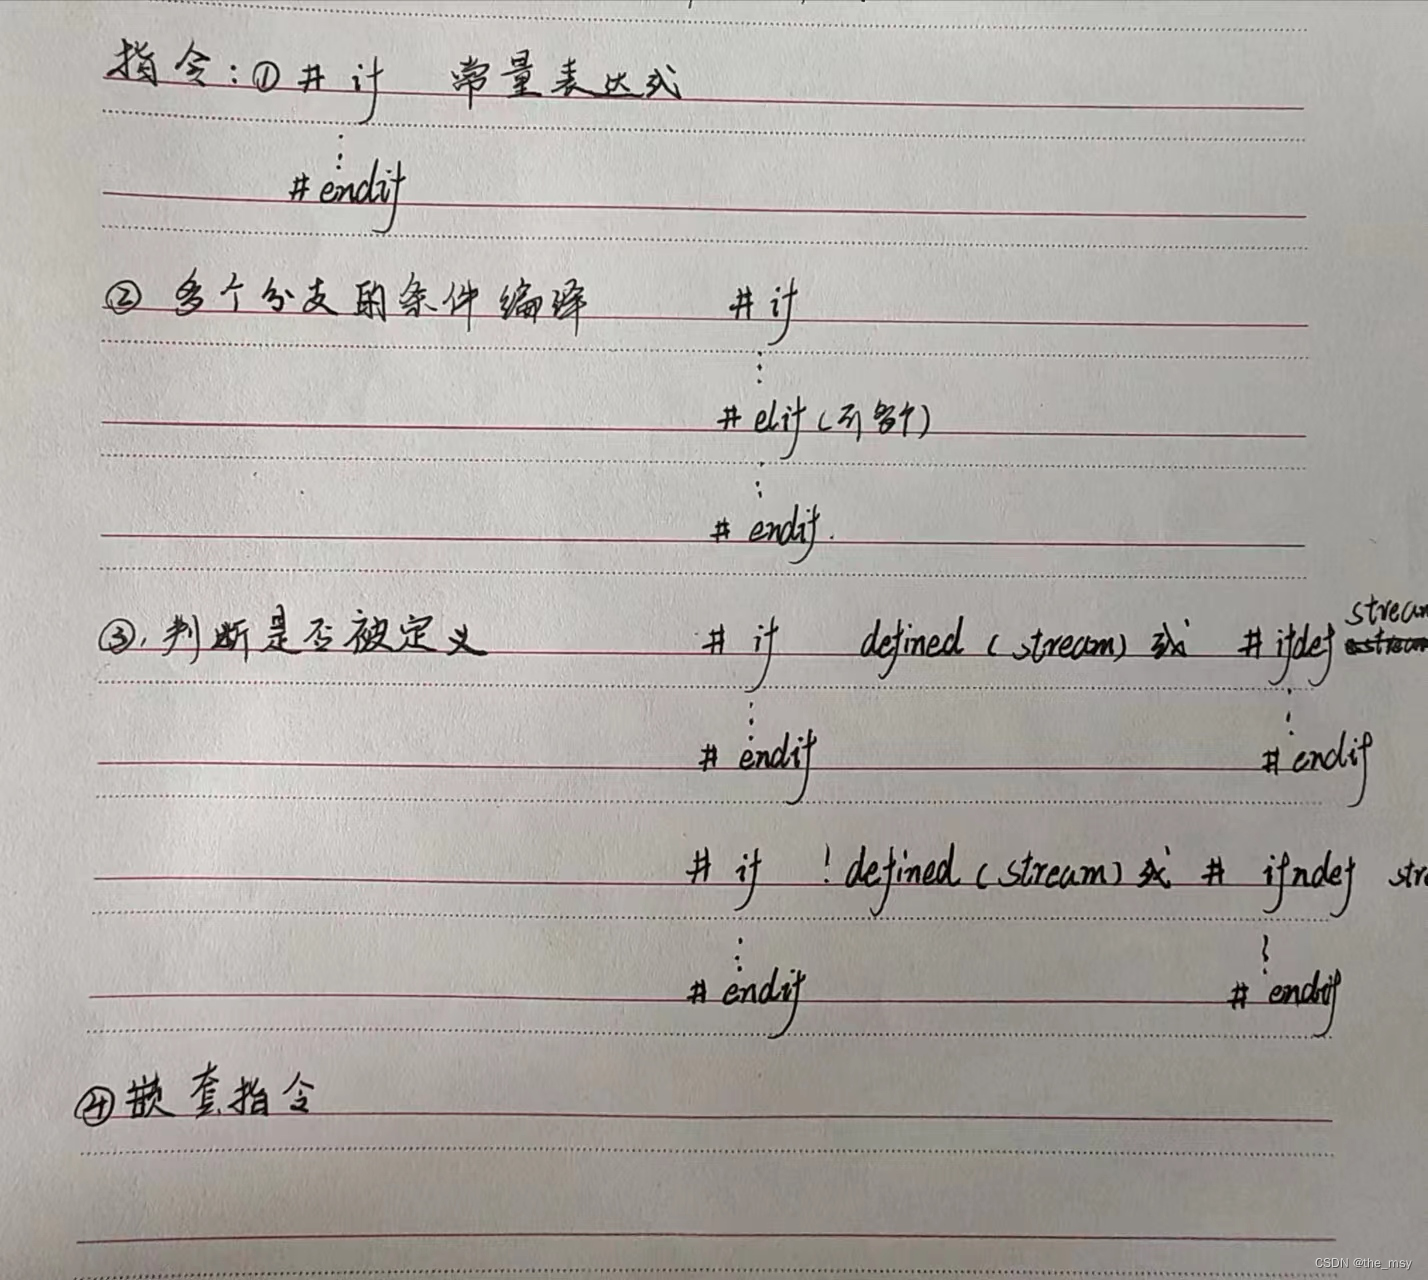 指令:① # if 常量表达式
⋮
# endif
② 多个分支的条件编译 # if
⋮
# elif (可多个)
⋮
# endif.
③. 判断是否被定义 # if defined (stream) 或 # ifdef stream
⋮ ⋮
# endif # endif
# if !defined (stream) 或 # ifndef stre
⋮ ⋮
# endif # endif
④ 嵌套指令
CSDN @the_msy